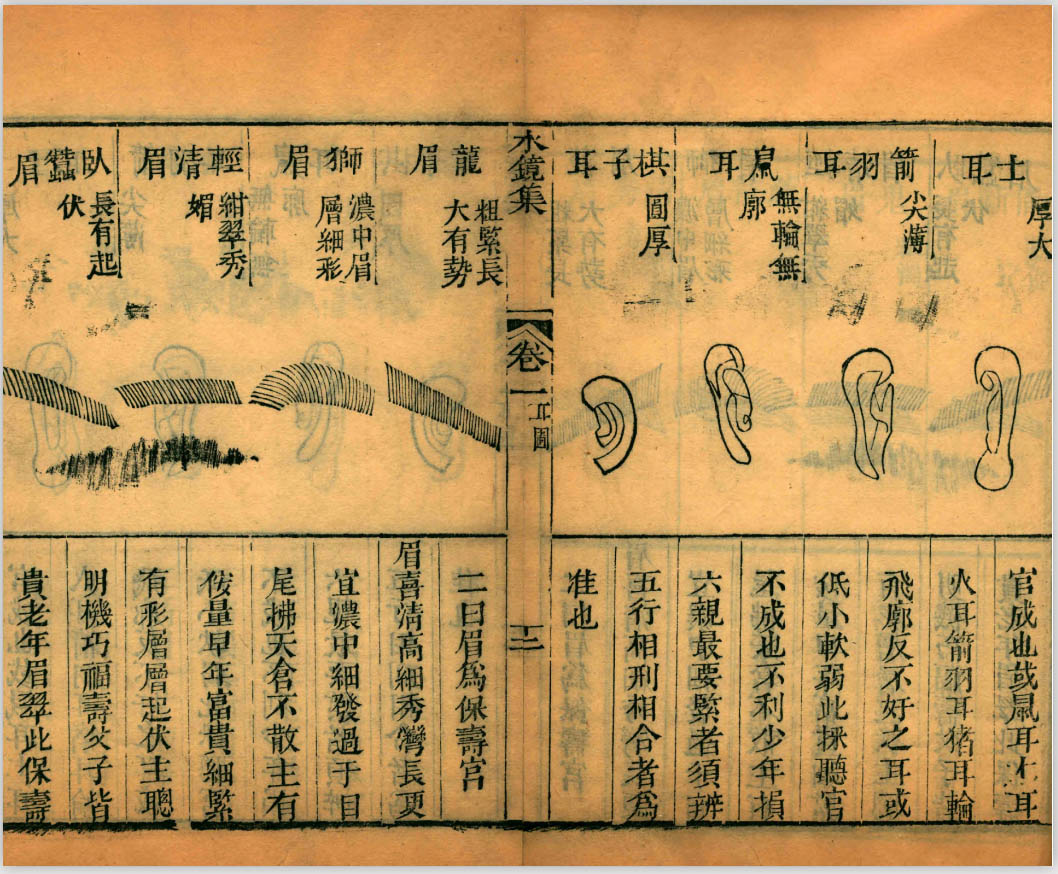 土耳
厚大
箭羽耳
尖薄
鼠耳
無輪無
廓
棋子耳
圓厚
官成也或鼠耳木耳
火耳箭羽耳猪耳輪
飛廓反不好之耳或
低小軟弱此採聽官
不成也不利少年損
六親最要緊者須辨
五行相刑相合者為
准也
水鏡集
卷一
耳圖
十二
龍眉
粗緊長
大有勢
獅眉
濃中眉
層細彩
輕清眉
紺翠秀
媚
臥蠶眉
長有起
伏
二曰眉爲保壽官
眉喜清高細秀灣長更
宜濃中細發過于目
尾拂天倉不散主有
伎量早年富貴細緊
有彩層層起伏主聰
明機巧福壽父子皆
貴老年眉翠此保壽